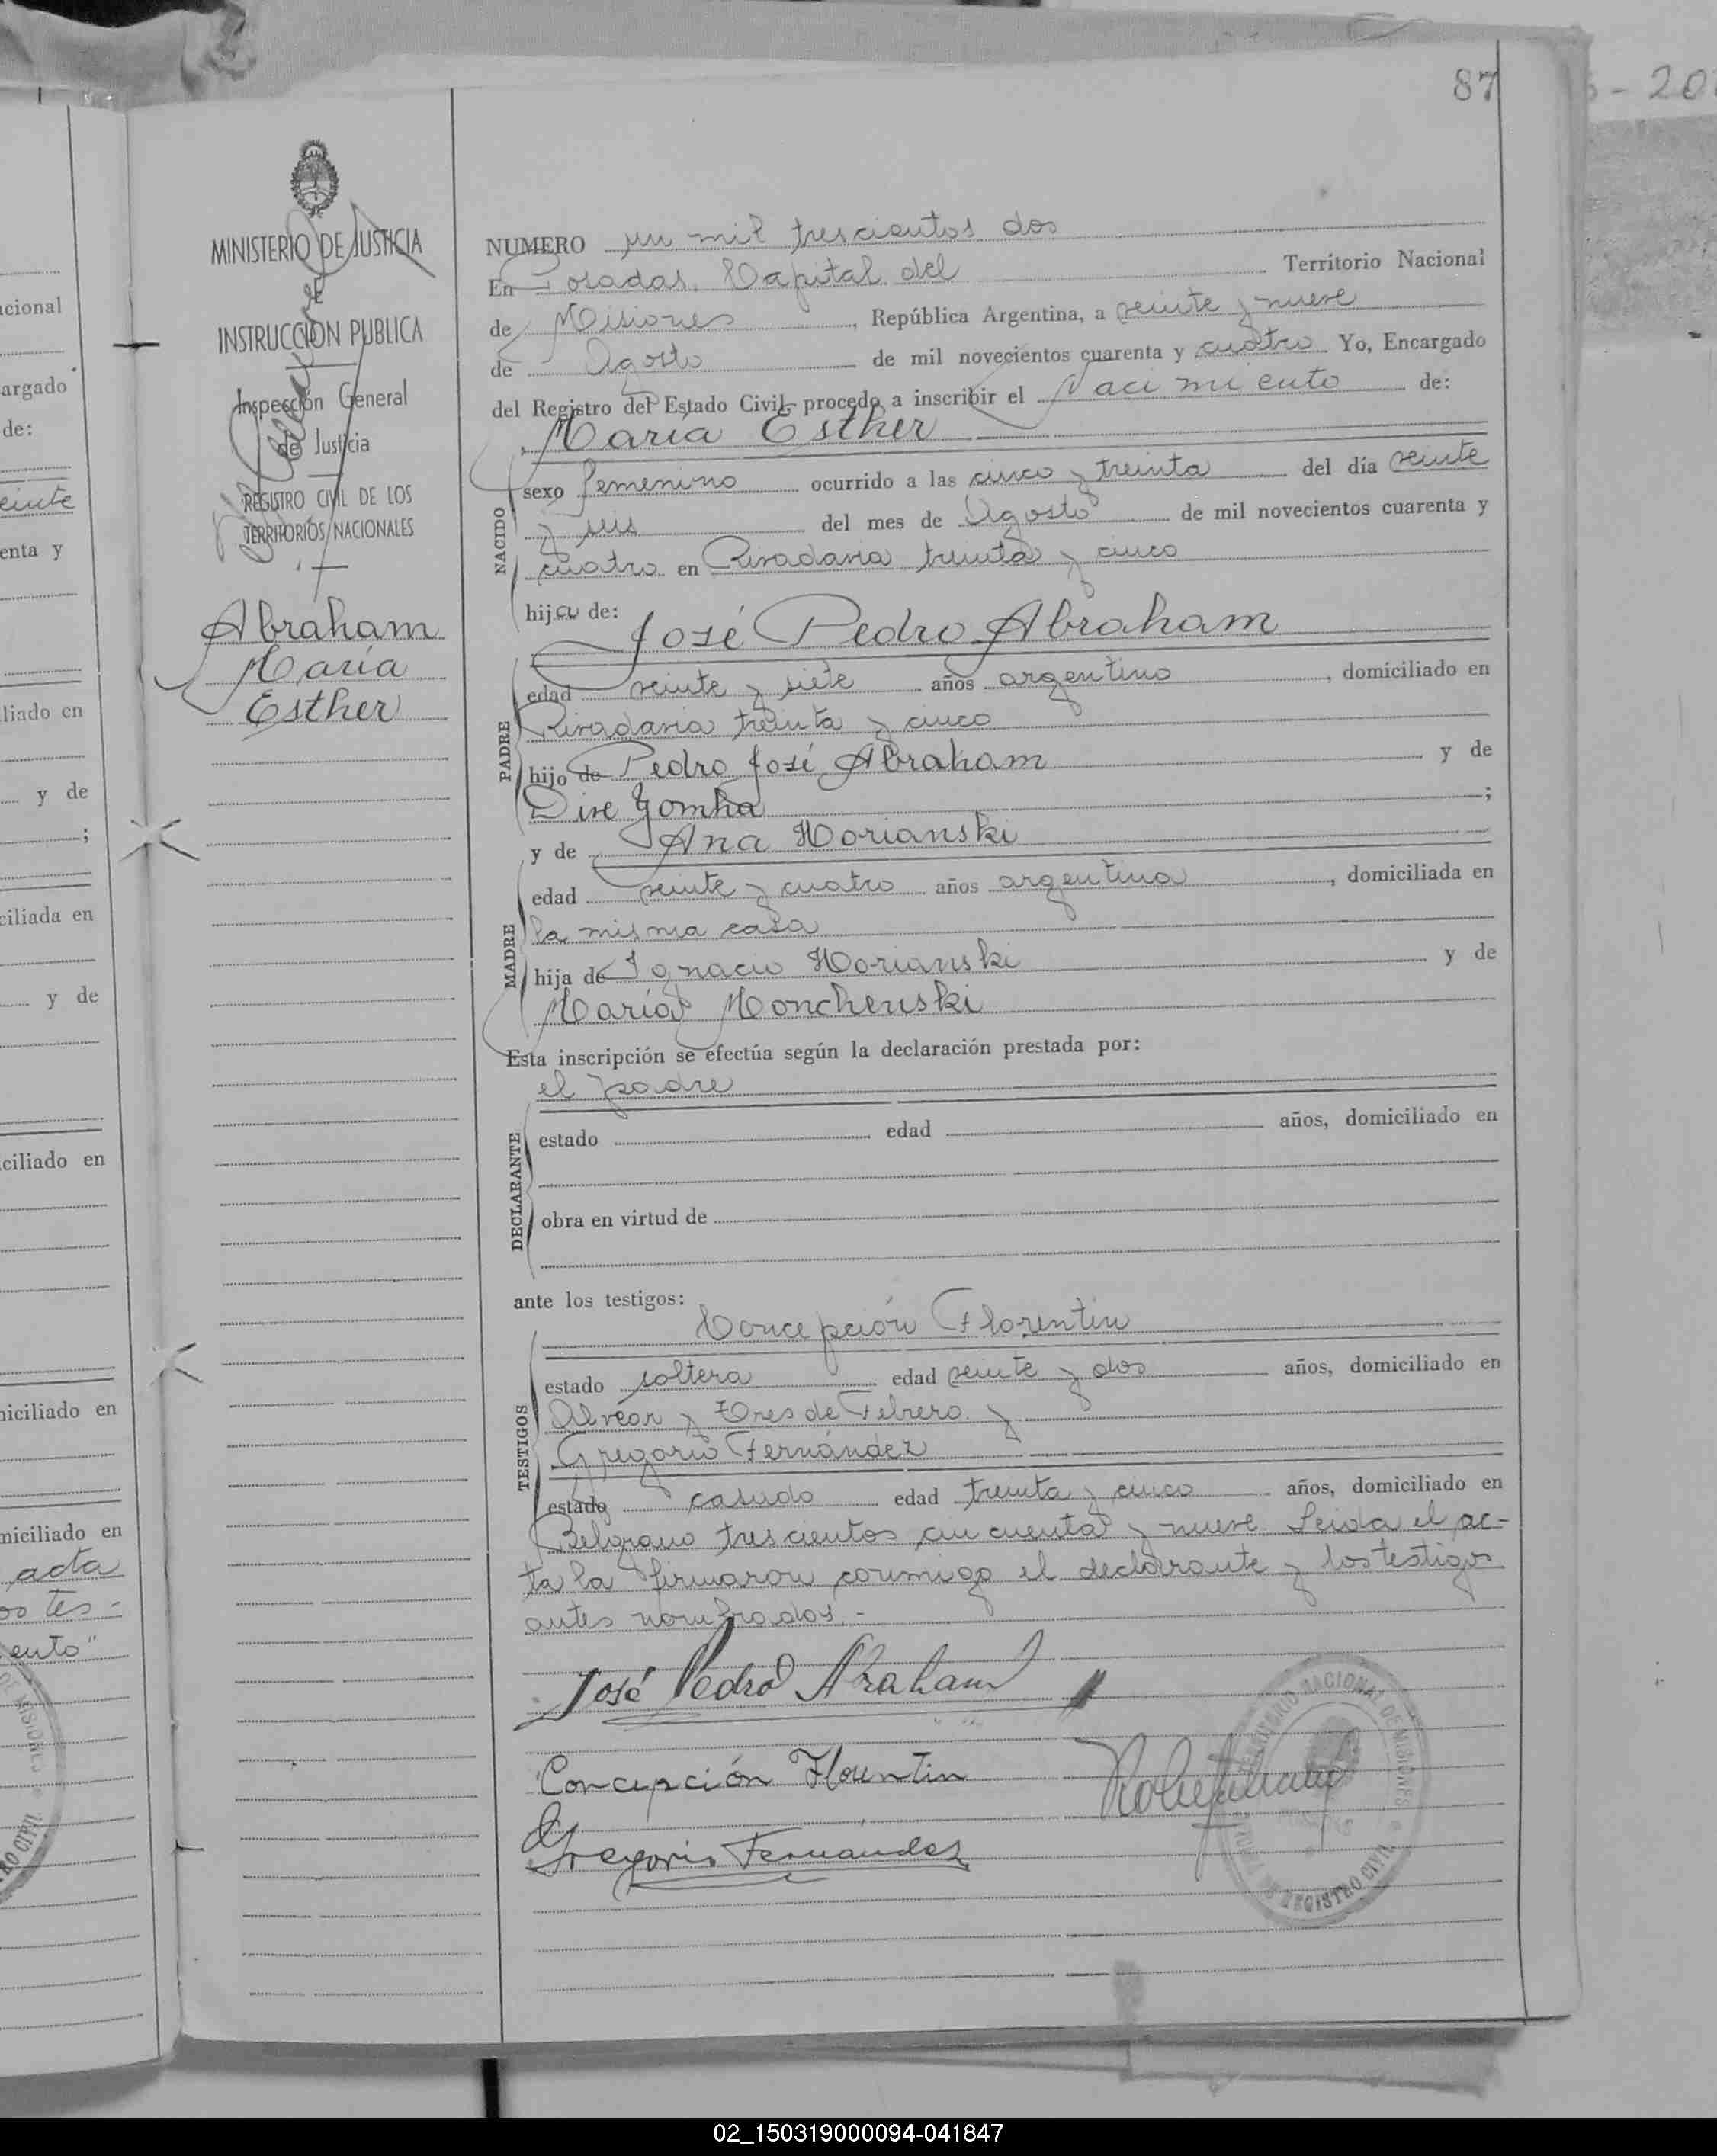 87
- 20
MINISTERIO DE JUSTICIA
E
INSTRUCCION PUBLICA
Inspección General
de Justicia
REGISTRO CIVIL DE LOS
TERRITORIOS NACIONALES
Abraham
María
Esther
NUMERO un mil trescientos dos
En Posadas. Capital del Territorio Nacional
de Misiones, República Argentina, a veinte y nueve
de Agosto de mil novecientos cuarenta y cuatro Yo, Encargado
del Registro del Estado Civil, procedo a inscribir el Nacimiento de:
María Esther
NACIDO
sexo femenino ocurrido a las cinco y treinta del día veinte
y seis del mes de Agosto de mil novecientos cuarenta y
cuatro en Rivadavia treinta y cinco
hija de:
José Pedro Abraham
PADRE
edad veinte y siete años argentino, domiciliado en
Rivadavia treinta y cinco
hijo de Pedro José Abraham y de
Dive Yomha;
y de Ana Horianski
MADRE
edad veinte y cuatro años argentina, domiciliada en
la misma casa
hija de Ignacio Horianski y de
María Moncheuski
Esta inscripción se efectúa según la declaración prestada por:
el padre
DECLARANTE
estado edad años, domiciliado en
obra en virtud de
ante los testigos:
Concepción Florentin
TESTIGOS
estado soltera edad veinte y dos años, domiciliado en
Alvear y Tres de Febrero y
Gregorio Fernández
estado casado edad treinta y cinco años, domiciliado en
Belgrano trescientos cincuenta y nueve. Leida el ac-
ta la firmaron conmigo el declarante y los testigos
antes nombrados.-
José Pedro Abraham
Concepción Florentin
Gregorio Fernández
TERRITORIO NACIONAL DE MISIONES
REGISTRO CIVIL
02_150319000094-041847